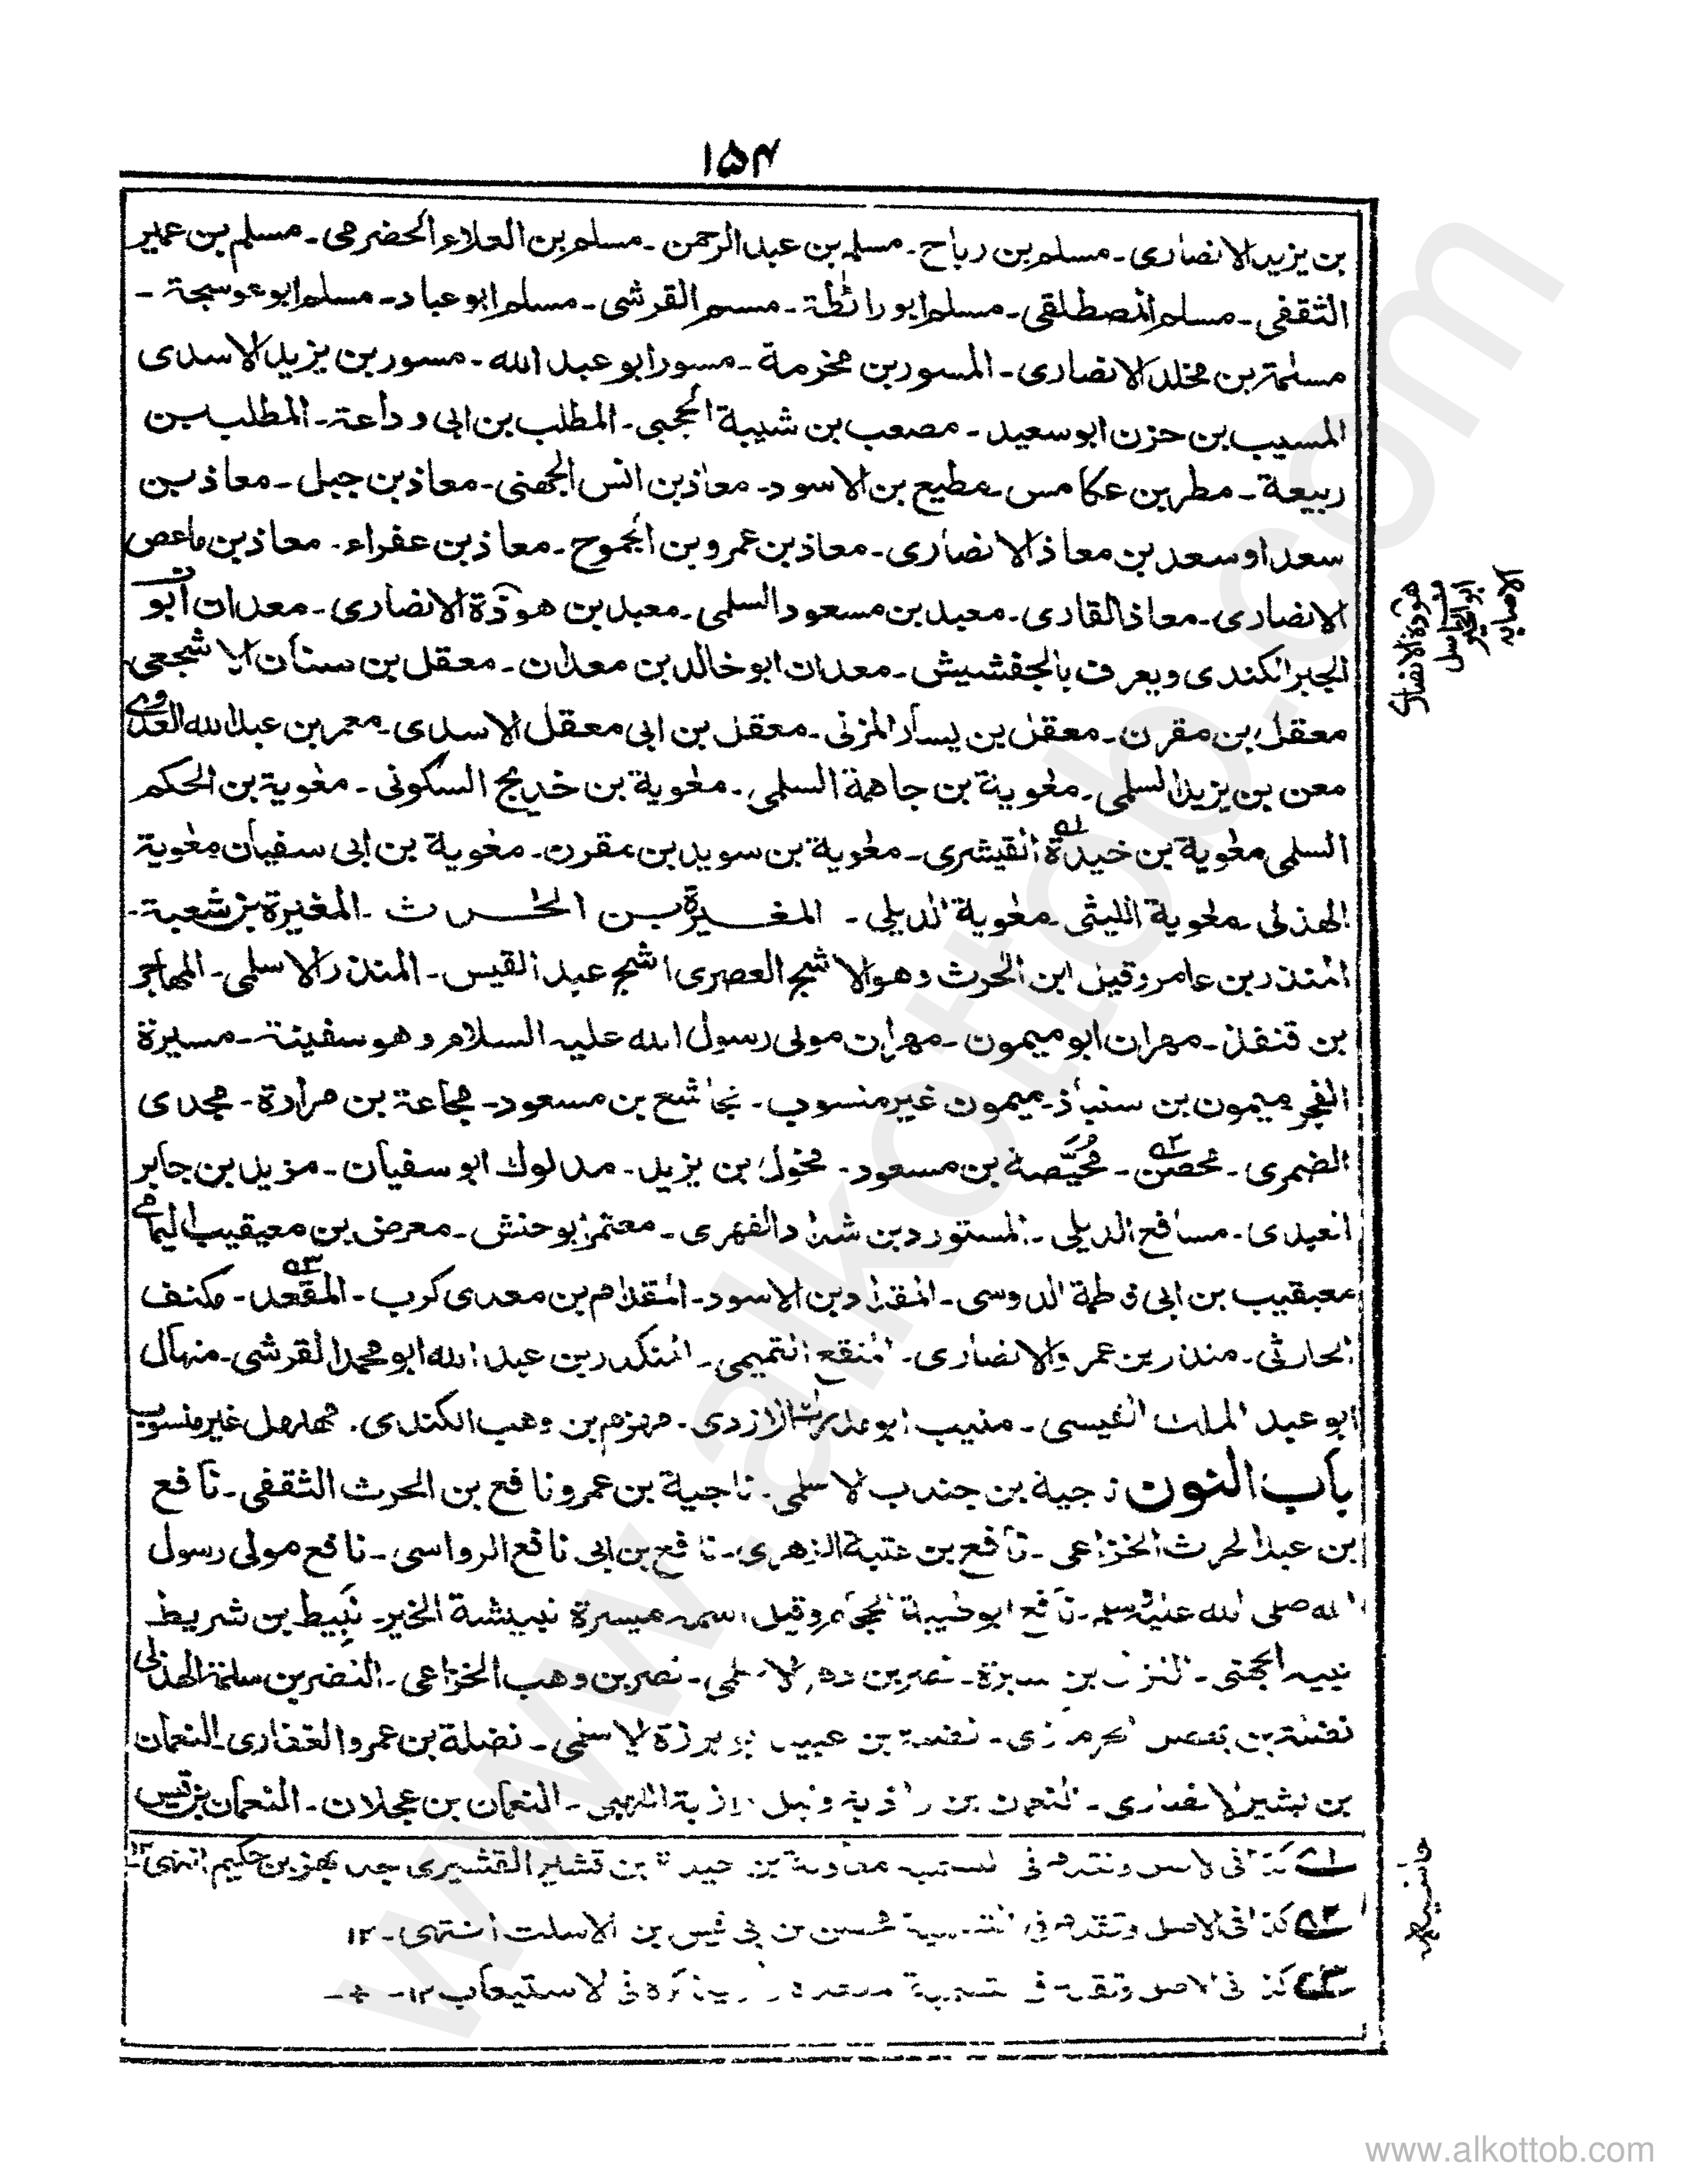 ۱۵۴
بن يزيد الانصارى ـ مسلم بن رباح ـ مسلم بن عبد الرحمن ـ مسلم بن العلاء الحضرمى ـ مسلم بن عمير
الثقفى ـ مسلم المصطلقى ـ مسلم ابو رائطة ـ مسلم القرشى ـ مسلم ابو عباد ـ مسلم ابو عوسجة ـ
مسلمة بن مخلد الانصارى ـ المسور بن مخرمة ـ مسور ابو عبد الله ـ مسور بن يزيد الاسدى
المسيب بن حزن ابو سعيد ـ مصعب بن شيبة الحجبى ـ المطلب بن ابى وداعة ـ المطلب بن
ربيعة ـ مطر بن عكامس ـ مطيع بن الاسود ـ معاذ بن انس الجهنى ـ معاذ بن جبل ـ معاذ بن
سعد او سعد بن معاذ الانصارى ـ معاذ بن عمرو بن الجموح ـ معاذ بن عفراء ـ معاذ بن ماعص
الانصارى ـ معاذ القارى ـ معبد بن مسعود السلمى ـ معبد بن هوذة الانصارى ـ معدان ابو
الجبر الكندى ويعرف بالجفشيش ـ معدان ابو خالد بن معدان ـ معقل بن سنان الاشجعى
معقل بن مقرن ـ معقل بن يسار المزنى ـ معقل بن ابى معقل الاسدى ـ معمر بن عبد الله العدوى
معن بن يزيد السلمى ـ معوية بن جاهمة السلمى ـ معوية بن خديج السكونى ـ معوية بن الحكم
السلمى معوية بن خيدة القيشرى ـ معوية بن سويد بن مقرن ـ معوية بن ابى سفيان معوية
الهذلى ـ معوية الليثى ـ معوية الديلى ـ المغيرة بن الحرث ـ المغيرة بن شعبة ـ
المنذر بن عامر وقيل ابن الحرث وهو الاشج العصرى اشج عبد القيس ـ المنذر الاسلمى ـ المهاجر
بن قنفذ ـ مهران ابو ميمون ـ مهران مولى رسول الله عليه السلام وهو سفينة ـ مسيرة
الفجر ميمون بن سنباذ ـ ميمون غير منسوب ـ مجاشع بن مسعود ـ مجاعة بن مرارة ـ مجدى
الضمرى ـ محصن ـ مُحَيِّصة بن مسعود ـ مخول بن يزيد ـ مدلوك ابو سفيان ـ مزيد بن جابر
العبدى ـ مسافع الديلى ـ المستورد بن شداد الفهرى ـ معتمر ابو حنش ـ معرض بن معيقيب اليمامى
معيقيب بن ابى فاطمة الدوسى ـ المقداد بن الاسود ـ المقدام بن معدى كرب ـ المقعد ـ مكنف
الحارثى ـ منذر بن عمرو الانصارى ـ المنقع التميمى ـ المنكدر بن عبد الله ابو محمد القرشى ـ منهال
ابو عبد الملك القيسى ـ منيب ابو مدرك الازدى ـ مهزم بن وهب الكندى ـ مهلهل غير منسوب
باب النون ناجية بن جندب الاسلمى ـ ناجية بن عمرو نافع بن الحرث الثقفى ـ نافع
بن عبد الحرث الخزاعى ـ نافع بن عتبة الزهرى ـ نافع بن ابى نافع الرواسى ـ نافع مولى رسول
الله صلى الله عليه وسلم ـ نافع ابو طيبة الحجام وقيل اسمه ميسرة نبيشة الخير ـ نبيط بن شريط
نبيه الجهنى ـ النزال بن سبرة ـ نصر بن دهر الاسلمى ـ نصر بن وهب الخزاعى ـ النضر بن سلمة الهذلى
نضلة بن الحرمازى ـ نضلة بن عبيد ابو برزة الاسلمى ـ نضلة بن عمرو الغفارى ـ النعمان
بن بشير الانصارى ـ النعمان بن وقيل اللهبى ـ النعمان بن عجلان ـ النعمان بن قيس
هوذة الانصارى
ابو الخير
الاصابه
حاشيه
۱ كذا فى الاصل وتقدم فى معاوية بن حيدة بن قشير القشيرى جد بهز بن حكيم انتهى ۱۲
۲ كذا فى الاصل وتقدم فى محصن بن ابى قيس بن الاسلت انتهى ـ ۱۲
۳ كذا فى الاصل وتقدم فى تسمية فى الاستيعاب ۱۲ ـ
www.alkottob.com
www.alkottob.com